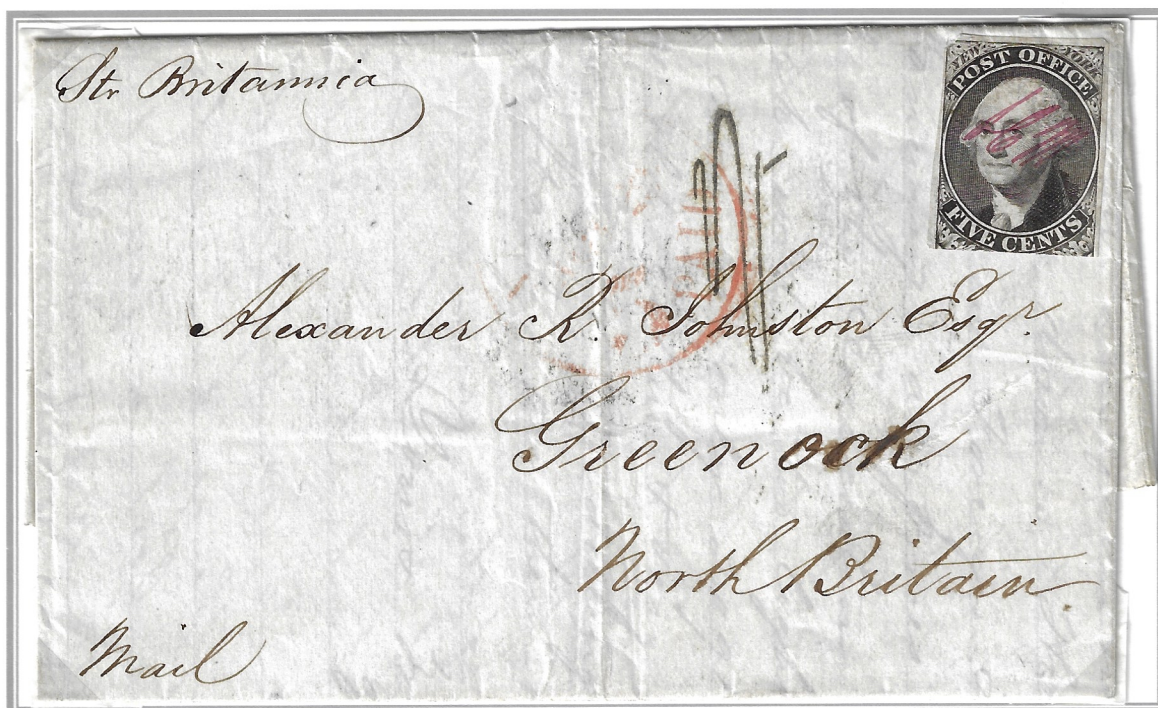 Str Britannia
NEW YORK
POST OFFICE
FIVE CENTS
PAID
Alexander R. Johnston Esqr.
Greenock
North Britain.
Mail